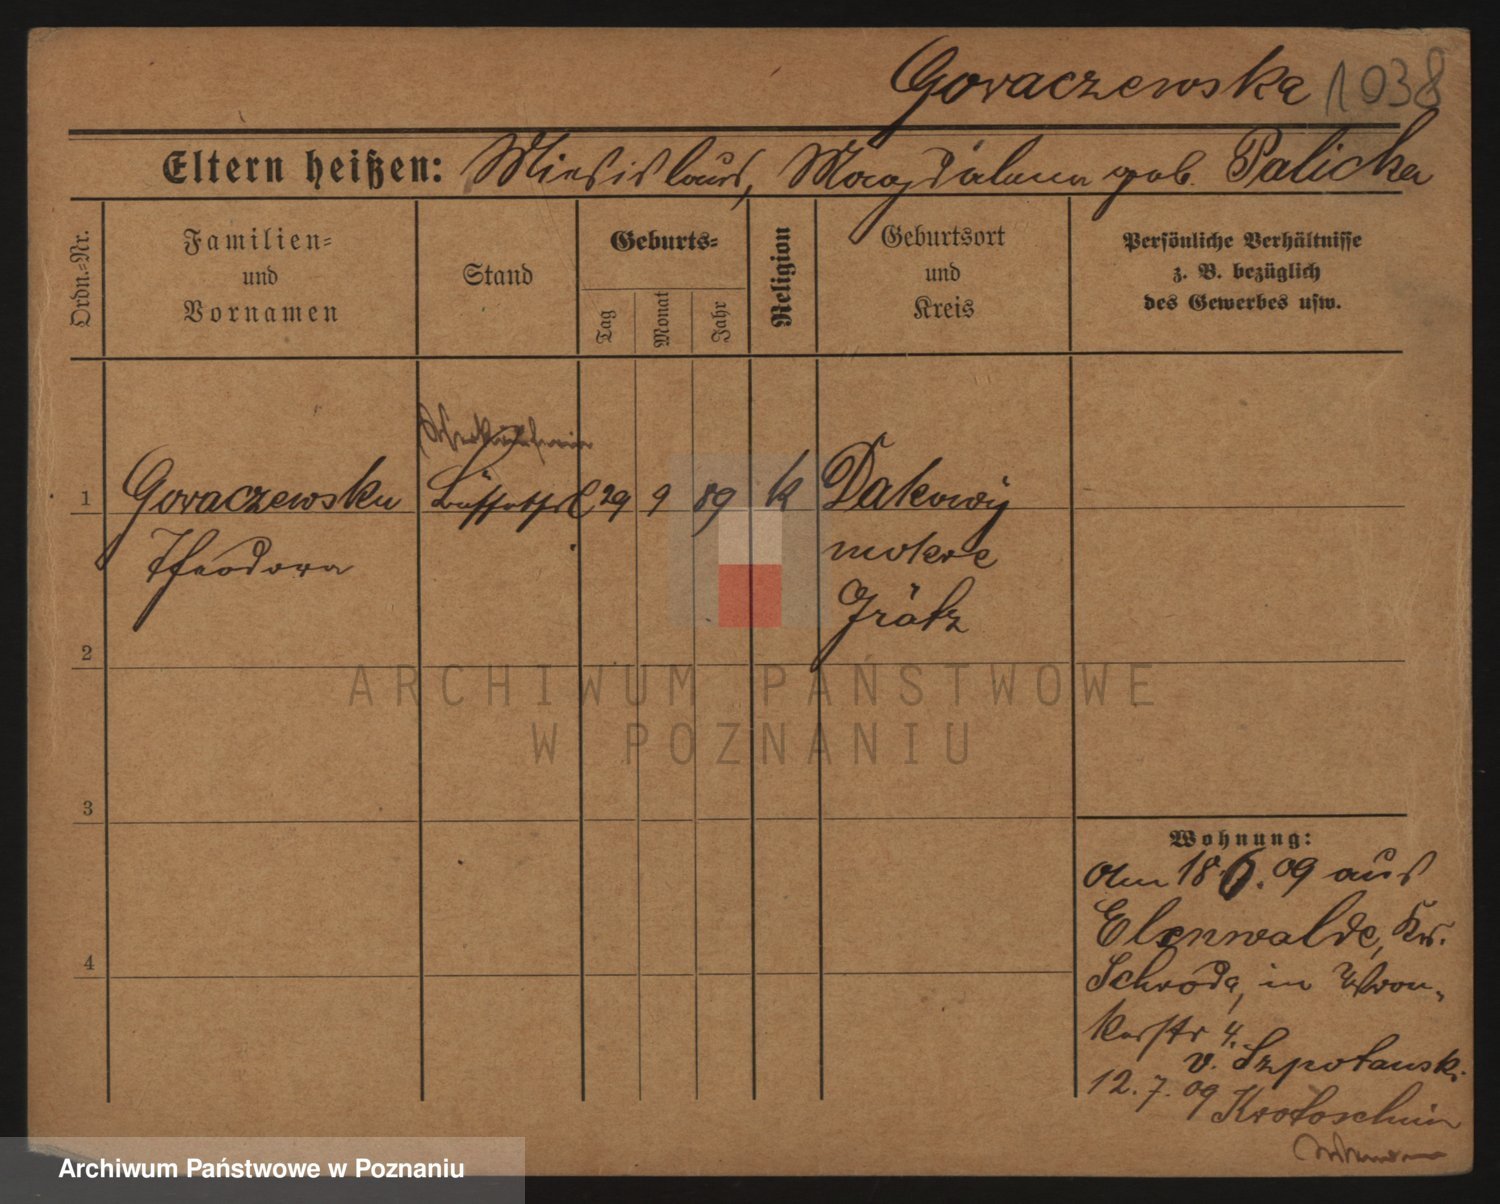 Goraczewska 1038
Eltern heißen: Miecislaus, Magdalena geb. Palicka
Ordn.-Nr.
Familien-
und
Vornamen
Stand
Geburts-
Tag
Monat
Jahr
Religion
Geburtsort
und
Kreis
Persönliche Verhältnisse
z. B. bezüglich
des Gewerbes usw.
1
Goraczewska
Theodora
Büffetfrl
29 9 89 k
Dakowy
mokre
Grätz
2
3
4
Wohnung:
Am 18.6.09 aus
Elenwalde, Kr.
Schroda, in Wron-
kerstr 4.
v. Szpotanski
12.7.09
Krotoschin
ARCHIWUM PAŃSTWOWE
W POZNANIU
Archiwum Państwowe w Poznaniu